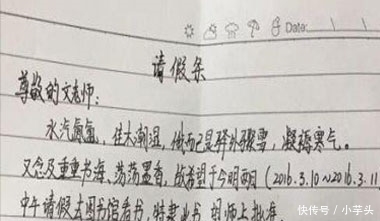 Date:
请假条
尊敬的文老师:
水汽氤氲,佳木潮湿,俄而已是驿外骤雪,凝搦寒气。
又念及重重书海、荡荡墨香,故希望于今明两日(2016.3.10~2016.3.11
中午请假去图书馆看书,特妻此书,望师上批准
快传号/小芋头